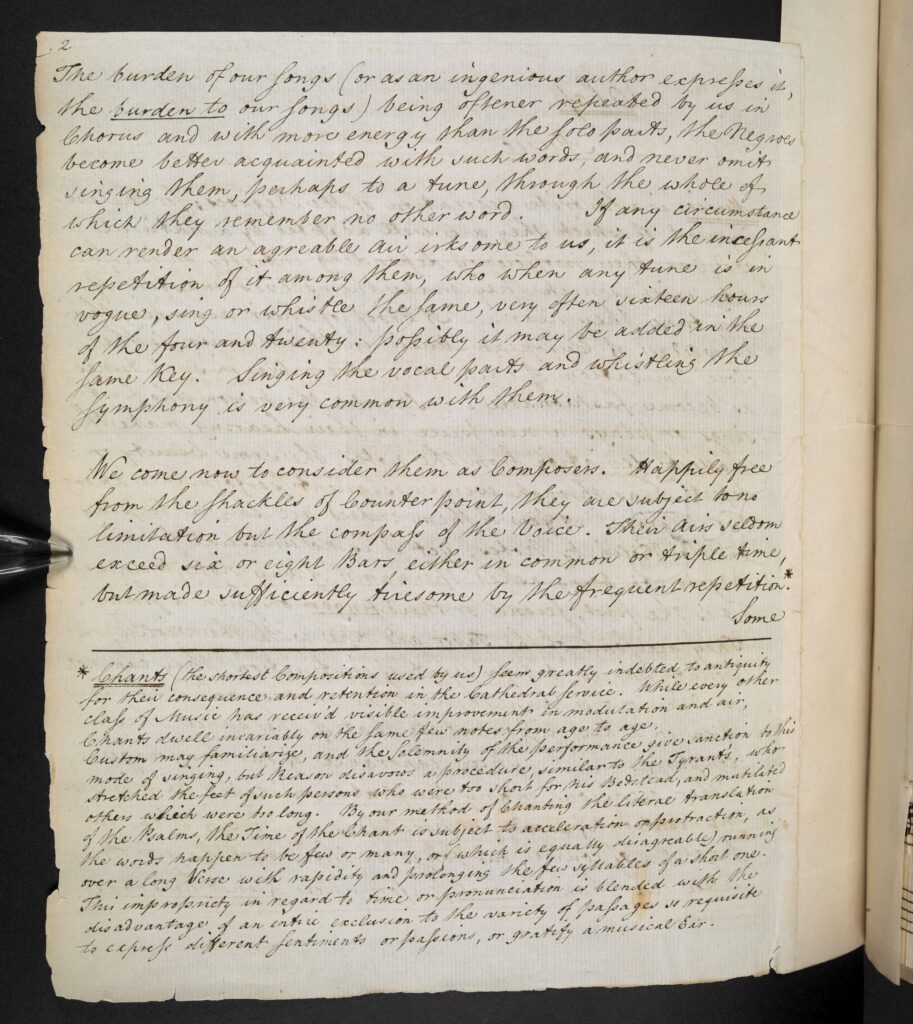 2
The burden of our songs (or as an ingenious author expresses it,
the burden to our songs) being oftener repeated by us in
Chorus and with more energy than the solo parts, the Negroes
become better acquainted with such words, and never omit
singing them, perhaps to a tune, through the whole of
which they remember no other word. If any circumstance
can render an agreable air irksome to us, it is the incessant
repetition of it among them, who when any tune is in
vogue, sing or whistle the same, very often sixteen hours
of the four and twenty: possibly it may be added in the
same Key. Singing the vocal parts and whistling the
Symphony is very common with them.
We come now to consider them as Composers. Happily free
from the shackles of Counterpoint, they are subject to no
limitation but the compass of the Voice. Their airs seldom
exceed six or eight Bars, either in common or triple time,
but made sufficiently tiresome by the frequent repetition.*
Some
* Chants (the shortest Compositions used by us) seem greatly indebted to antiquity
for their consequence and retention in the Cathedral service. While every other
class of Music has receiv'd visible improvement in modulation and air,
Chants dwell invariably on the same few notes from age to age.
Custom may familiarize, and the Solemnity of the performance give sanction to this
mode of singing, but Reason disavows a procedure, similar to the Tyrant's, who
stretched the feet of such persons who were too short for his Bedstead, and mutilated
others which were too long. By our method of Chanting the literal translation
of the Psalms, the Time of the Chant is subject to acceleration or protraction, as
the words happen to be few or many, or (which is equally disagreable) running
over a long Verse with rapidity and prolonging the few syllables of a short one.
This impropriety in regard to time or pronunciation is blended with the
disadvantage of an intire exclusion to the variety of passages so requisite
to express different sentiments or passions, or gratify a musical Ear.